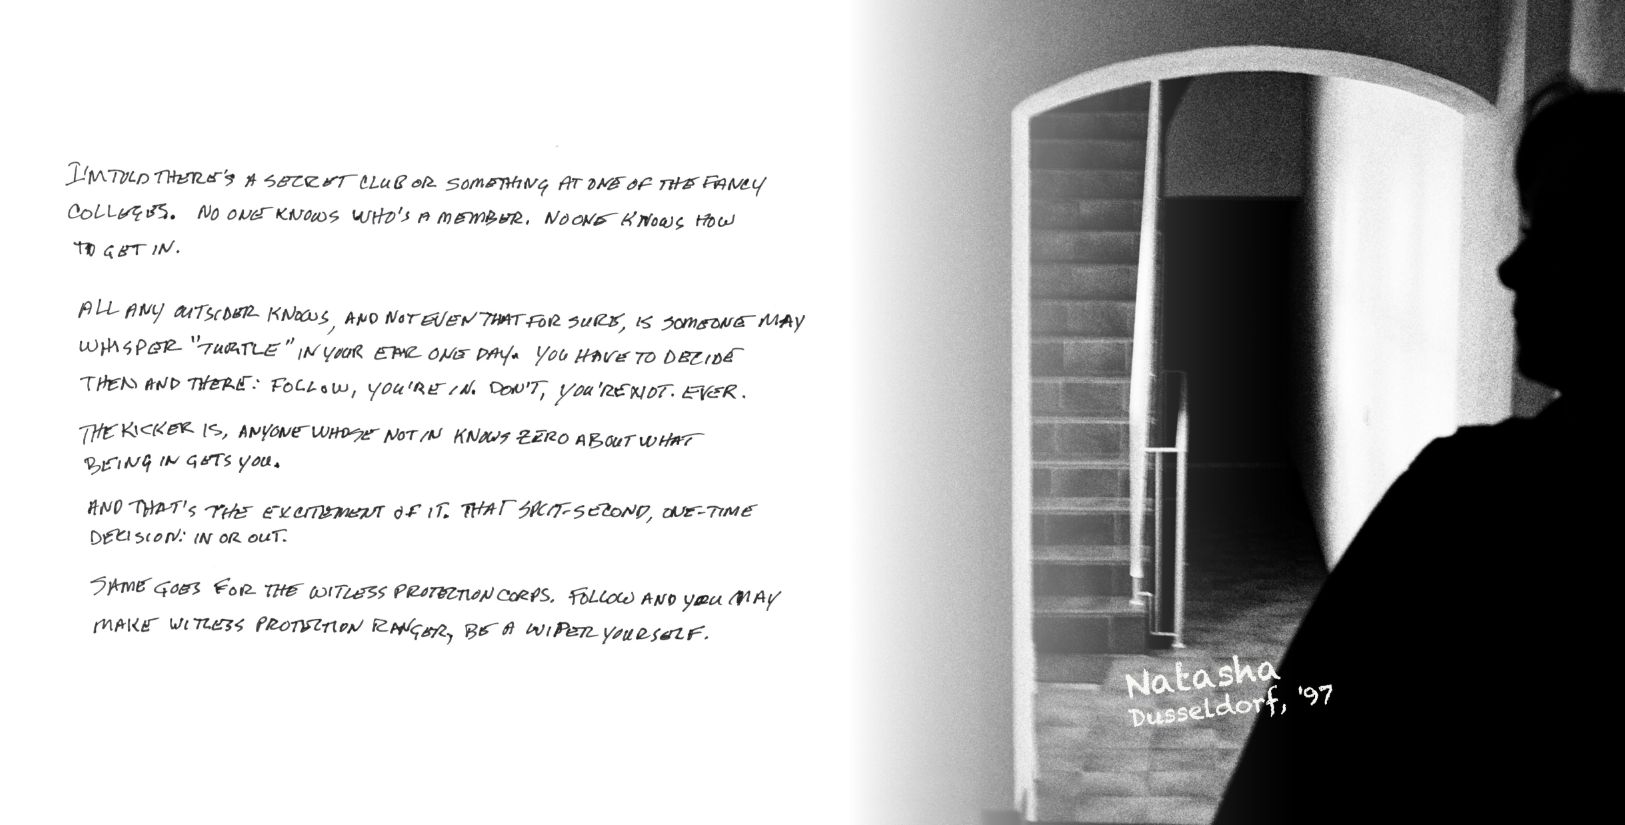 I'M TOLD THERE'S A SECRET CLUB OR SOMETHING AT ONE OF THE FANCY
COLLEGES. NO ONE KNOWS WHO'S A MEMBER. NO ONE KNOWS HOW
TO GET IN.
ALL ANY OUTSIDER KNOWS, AND NOT EVEN THAT FOR SURE, IS SOMEONE MAY
WHISPER "TURTLE" IN YOUR EAR ONE DAY. YOU HAVE TO DECIDE
THEN AND THERE: FOLLOW, YOU'RE IN. DON'T, YOU'RE NOT. EVER.
THE KICKER IS, ANYONE WHOSE NOT IN KNOWS ZERO ABOUT WHAT
BEING IN GETS YOU.
AND THAT'S THE EXCITEMENT OF IT. THAT SPLIT-SECOND, ONE-TIME
DECISION: IN OR OUT.
SAME GOES FOR THE WITLESS PROTECTION CORPS. FOLLOW AND YOU MAY
MAKE WITLESS PROTECTION RANGER, BE A WIPER YOURSELF.
Natasha
Dusseldorf, '97